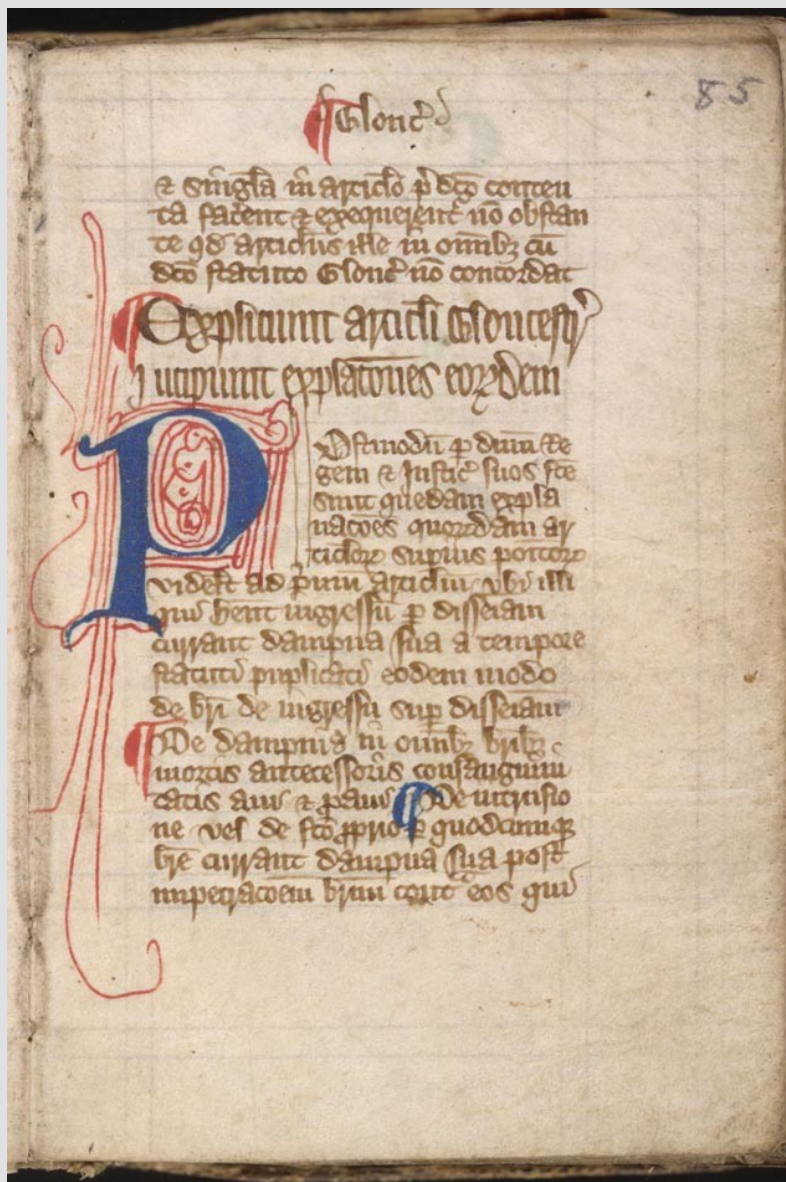 85
¶ Glouc̛
⁊ singl̃a in articl̃o p̃dc̃o conten
ta facẽnt ⁊ exequerent̛ nõ obstan
te qd̛ articl̃us ille in om̃ibꝫ cũ
dc̃o statuto Glouc̛ nõ concordat
¶ Expliciunt articl̃i Gloucestr̛
Incipiunt explac̃ones eorꝝdem
Postmodũ ꝑ dñm Re
gem ⁊ Justic̛ suos fc̃e
sunt quedam expla
nac̃ões quorꝝdam ar
ticl̃oꝝ supius positoꝝ
videlt̛ ad p̃mu articl̃m vbi illi
qui hẽnt ingressũ ꝑ disseiam̃
currant dampna sua a tempore
statuti puplicati eodem modo
de br̃i de ingressu sup̱ disseiam̃
¶ De dampnis in om̃ibꝫ br̃ibꝫ
mortis antecessoris consanguini
tatis aui ⁊ ꝓaui ¶ De intrusio
ne vel de fc̃o ꝓprio ꝑ quodcumqꝫ
br̃e currant dampna sua post
impetrac̃oem br̃ium cont̛ eos qui